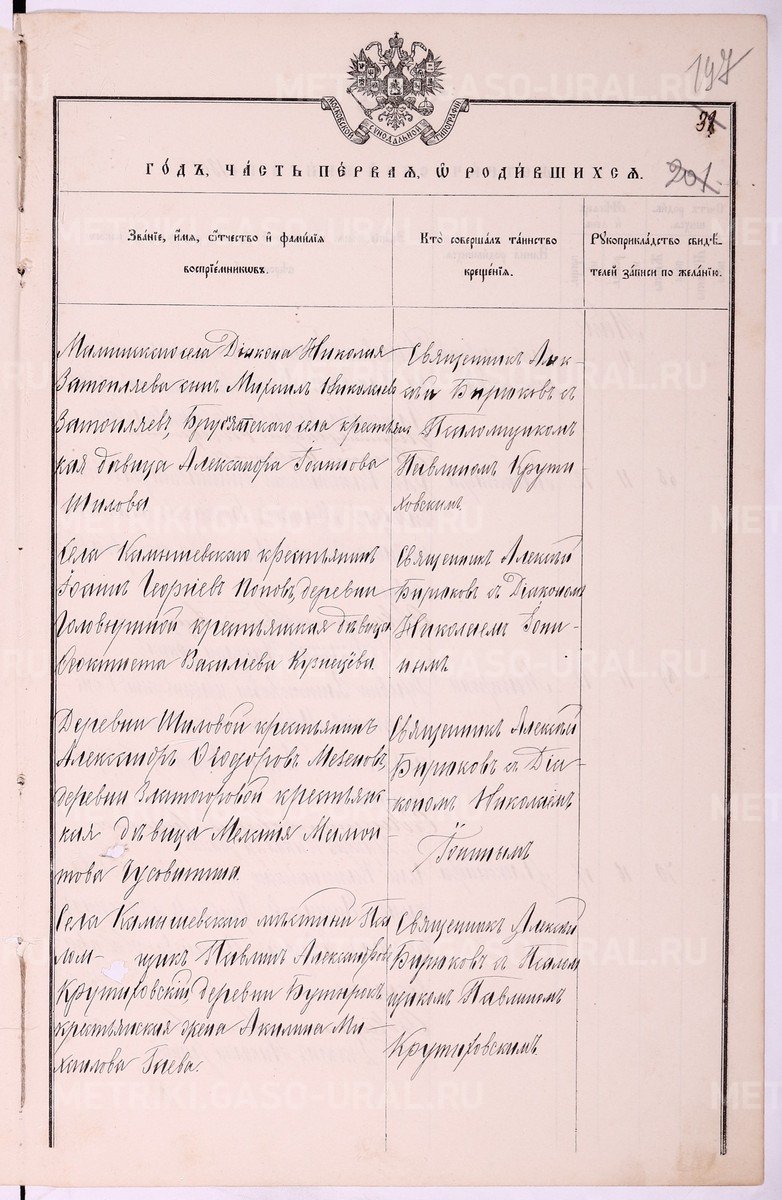 197
31
201.
МОСКОВСКОЙ СѴНОДАЛЬНОЙ ТИПОГРАФІИ
ГО́ДЪ, ЧА́СТЬ ПЕ́РВАЯ, Ѡ҆ РОДИ́ВШИХСЯ.
Зва́нїе, и҆́мя, ѻ҆́тчество и҆ фами́лїя
воспрїе́мникѡвъ.
Кто̀ соверша́лъ та́инство
креще́нїя.
Рꙋкоприкла́дство свидѣ́-
телей за́писи по жела́нїю.
села Діакона Николая
Затопляева сынъ Михаилъ Николаевъ
Затопляевъ, Бруснятскаго села крестьян
ская дѣвица Александра Іоаннова
Шилова
Священникъ Алек-
сѣй Бирюковъ съ
Псаломщикомъ
Павлиномъ Крути
ховскимъ
Села Камышевскаго крестьянинъ
Іоаннъ Георгіевъ Поповъ, деревни
крестьянская дѣвица
Ѳеоктиста Василіева Кузнецова
Священникъ Алексѣй
Бирюковъ съ Діакономъ
Николаемъ Топи-
нымъ
Деревни Шиловой крестьянинъ
Александръ Ѳеодоровъ Мезеновъ,
деревни Златогоровой крестьянс
кая дѣвица Мамон
това Чусовитина
Священникъ Алексѣй
Бирюковъ съ Діа-
кономъ Николаемъ
Села Камышевскаго мѣстный Пса
лом- щикъ Павлинъ Александровъ
Крутиховскій, деревни Бутырокъ
крестьянская жена Акилина Ми-
хаилова Гилева.
Священникъ Алексѣй
Бирюковъ съ Псалом
щикомъ Павлиномъ
Крутиховскимъ
METRIKI.GASO-URAL.RU